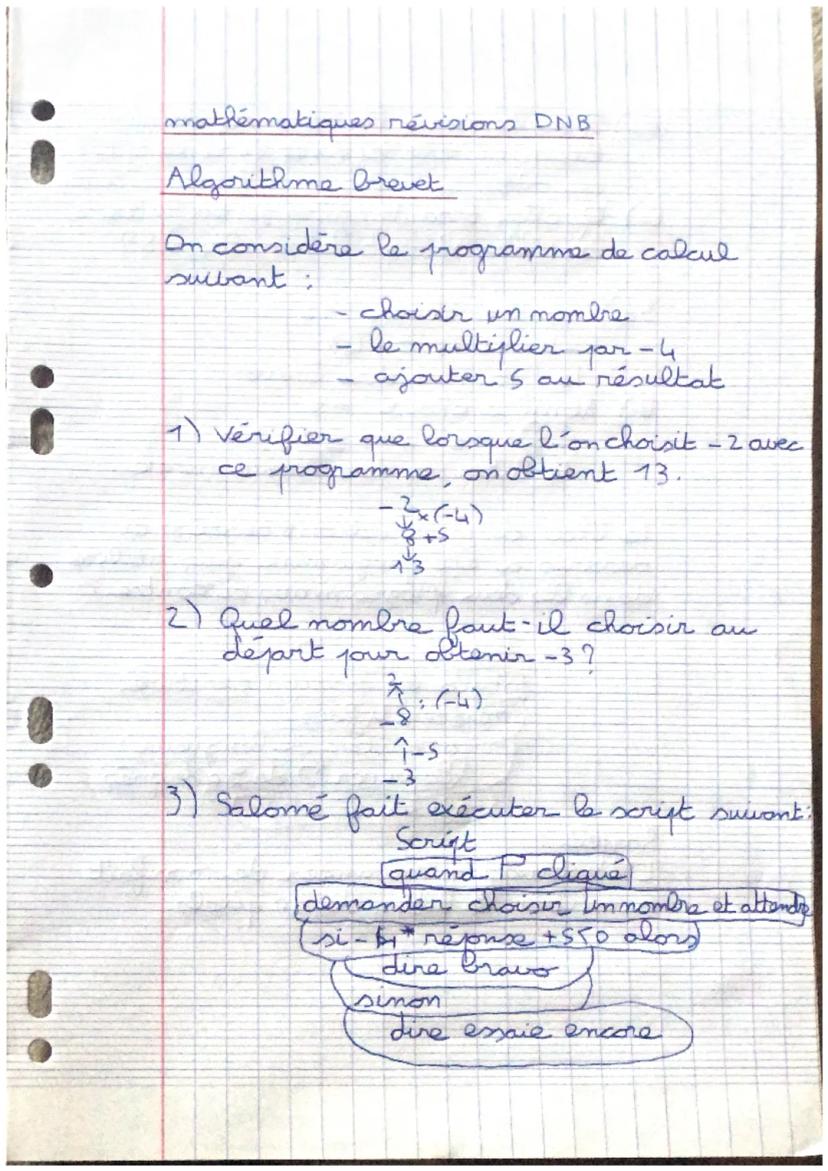 mathématiques révisions DNB
Algorithme brevet
On considère le programme de calcul
suivant :
- choisir un nombre
- le multiplier par -4
- ajouter 5 au résultat
1) Vérifier que lorsque l'on choisit -2 avec
ce programme, on obtient 13.
-2
↓ x(-4)
8 +5
↓
13
2) Quel nombre faut-il choisir au
départ pour obtenir -3?
2
↑ : (-4)
-8
↑ -5
-3
3) Salomé fait exécuter le script suivant:
Script
quand cliqué
demander choisir un nombre et attendre
si -4* réponse +5<0 alors
dire bravo
sinon
dire essaie encore